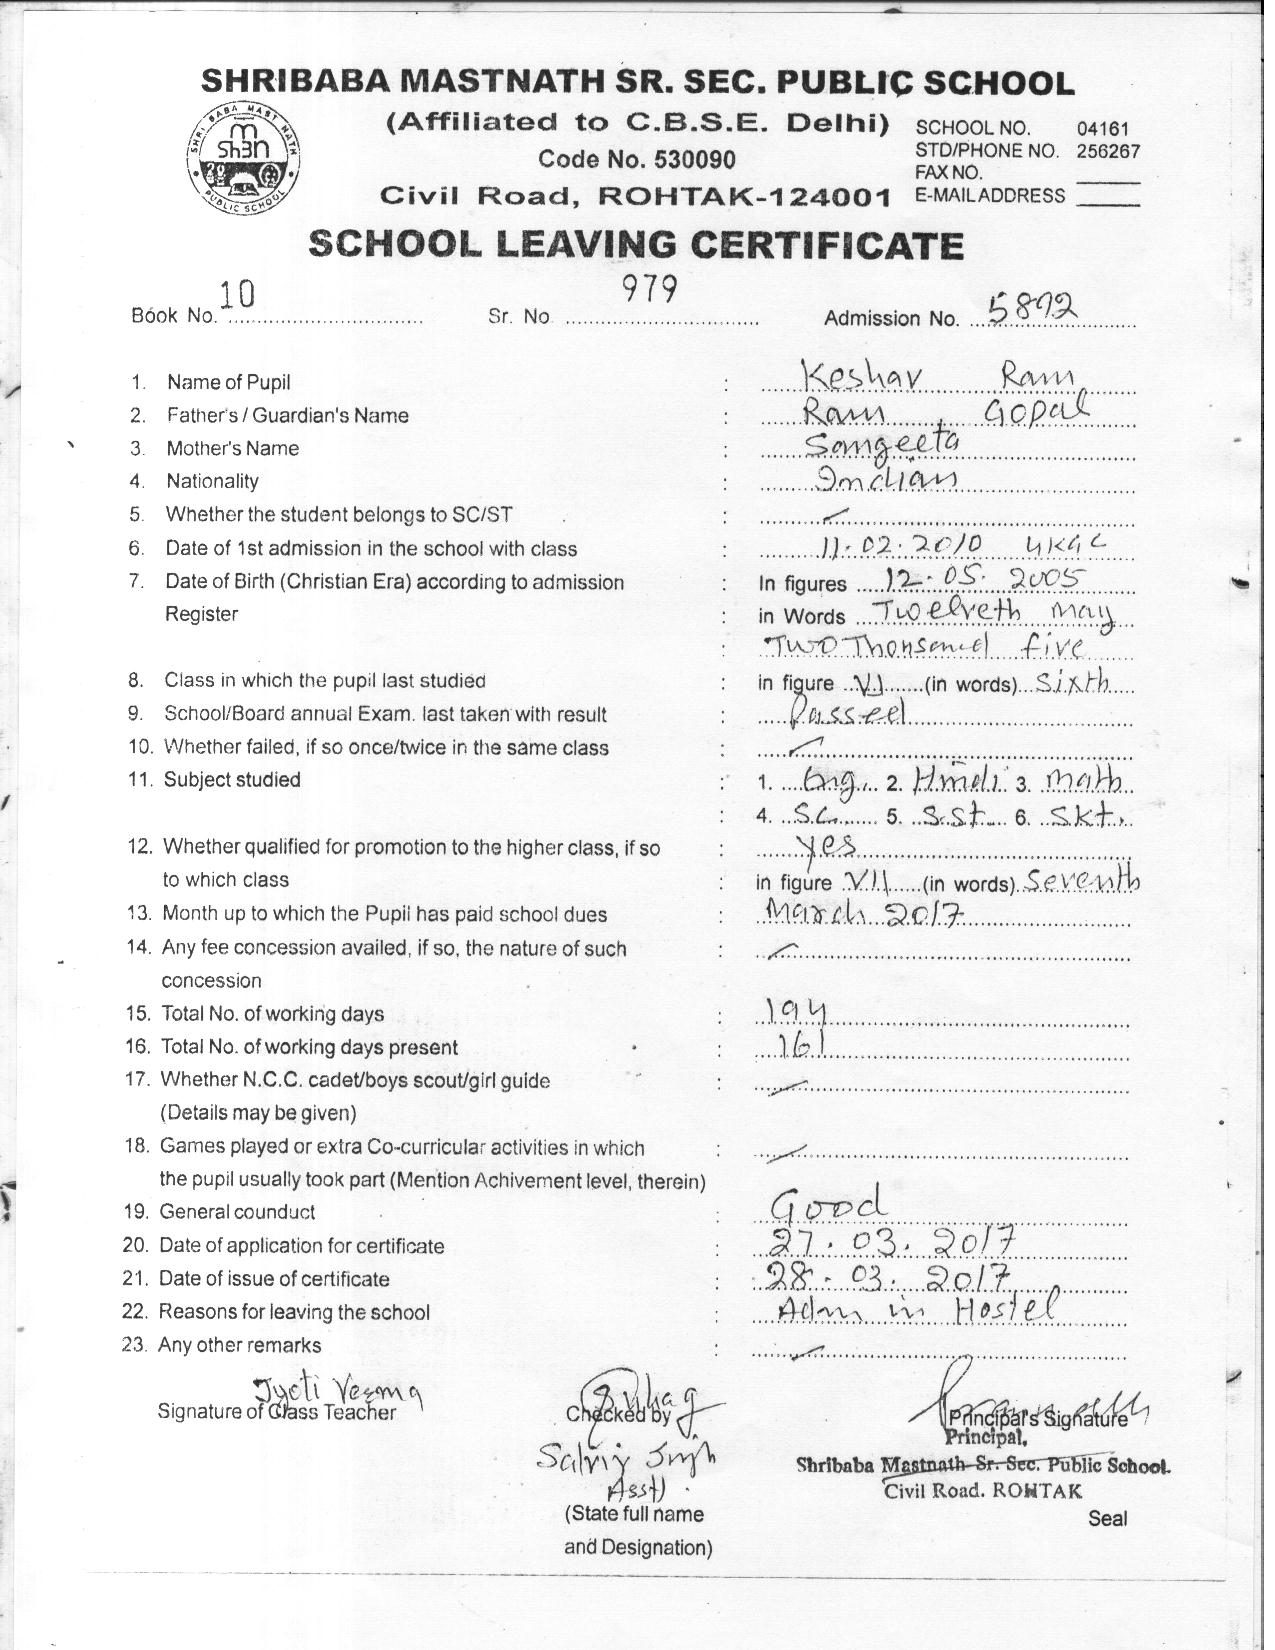 SHRIBABA MASTNATH SR. SEC. PUBLIC SCHOOL
(Affiliated to C.B.S.E. Delhi)
Code No. 530090
Civil Road, ROHTAK-124001
SCHOOL NO. 04161
STD/PHONE NO. 256267
FAX NO.
E-MAIL ADDRESS
SHRI BABA MAST NATH
PUBLIC SCHOOL
SCHOOL LEAVING CERTIFICATE
Book No. 10 Sr. No. 979 Admission No. 5892
1. Name of Pupil : Keshav Ram
2. Father's / Guardian's Name : Ram Gopal
3. Mother's Name : Sangeeta
4. Nationality : Indian
5. Whether the student belongs to SC/ST :
6. Date of 1st admission in the school with class : 11.02.2010 UKG C
7. Date of Birth (Christian Era) according to admission : In figures 12.05.2005
Register : in Words Twelveth May
: Two Thousand five
8. Class in which the pupil last studied : in figure VI (in words) Sixth
9. School/Board annual Exam. last taken with result : Passed
10. Whether failed, if so once/twice in the same class :
11. Subject studied : 1. Eng. 2. Hindi 3. Math
: 4. SC. 5. S.St. 6. Skt.
12. Whether qualified for promotion to the higher class, if so : yes
to which class : in figure VII (in words) Seventh
13. Month up to which the Pupil has paid school dues : March 2017
14. Any fee concession availed, if so, the nature of such :
concession
15. Total No. of working days : 194
16. Total No. of working days present : 161
17. Whether N.C.C. cadet/boys scout/girl guide :
(Details may be given)
18. Games played or extra Co-curricular activities in which :
the pupil usually took part (Mention Achivement level, therein)
19. General counduct : Good
20. Date of application for certificate : 27.03.2017
21. Date of issue of certificate : 28.03.2017
22. Reasons for leaving the school : Adm in Hostel
23. Any other remarks :
Jyoti Verma
Signature of Class Teacher Checked by Principal's Signature
Principal,
Shribaba Mastnath Sr. Sec. Public School.
Asstt
Civil Road. ROHTAK
(State full name Seal
and Designation)